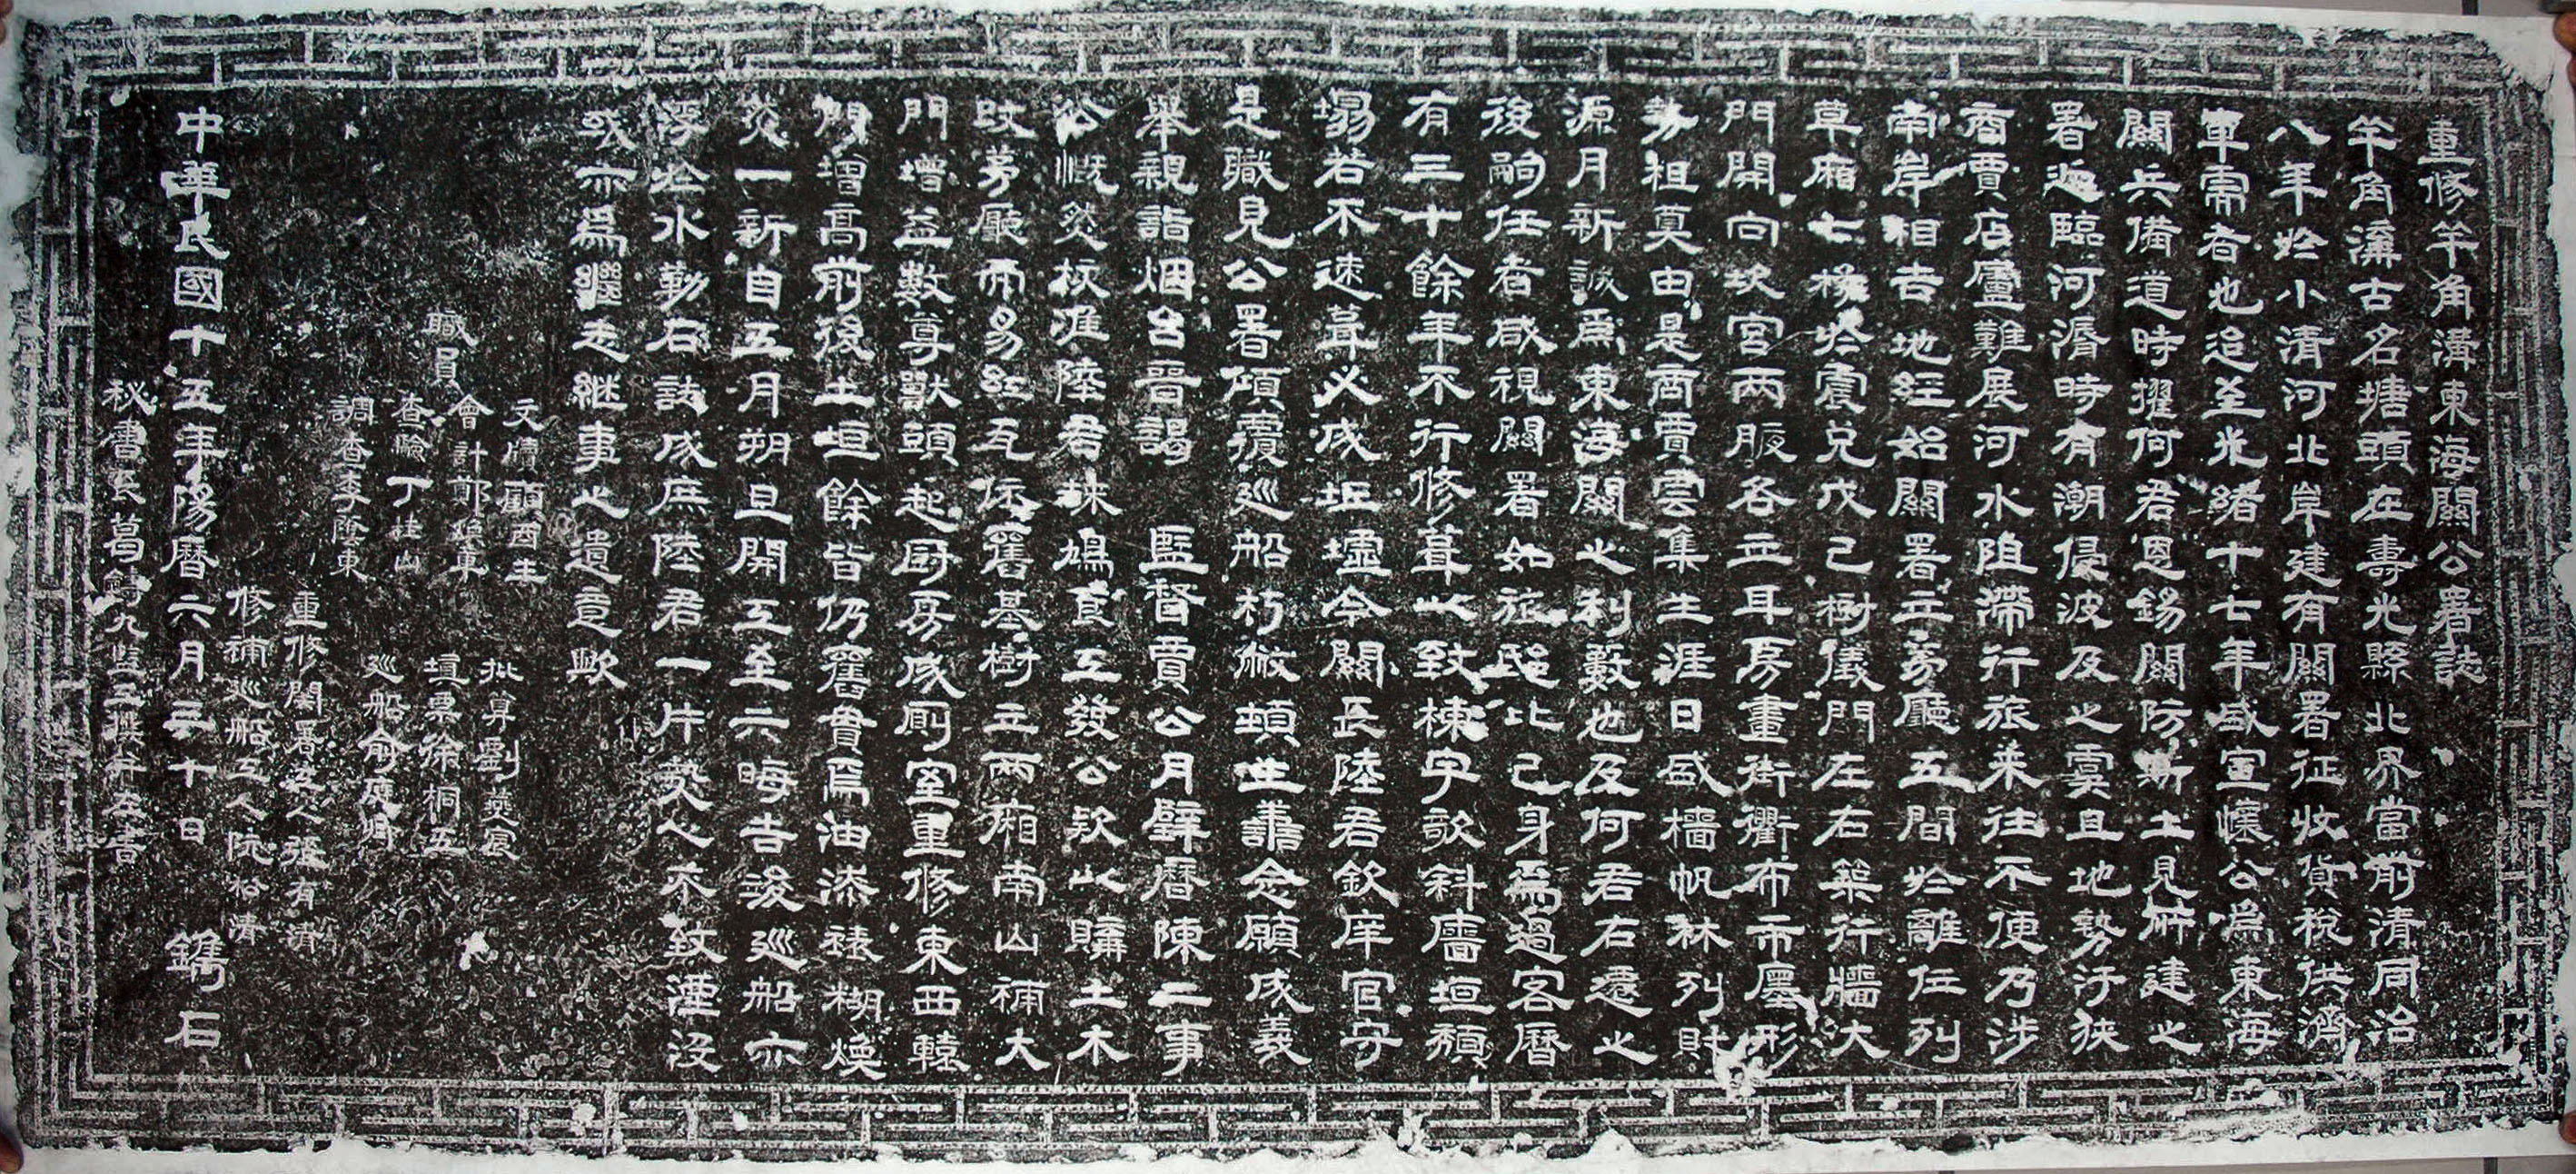 重修羊角溝東海關公署誌
羊角溝古名塘頭在壽光縣北界當前清同治
八年於小清河北岸建有關署征收貨稅供濟
軍需者也迨至光緒十七年盛宣懷公為東海
關兵備道時擢何君恩錫關防斯土見所建之
署迎臨河濱時有潮侵波及之虞且地勢汙狹
商賈店廬難展河水阻滯行旅來往不便乃涉
南岸相吉地經始關署立旁廳五間於離位列
草廂七楹於震兌戊己樹儀門左右築行牆大
門開向坎宮兩腋各立耳房畫街衢布市廛形
勢粗奠由是商賈雲集生涯日盛檣帆林列財
源月新誠為東海關之利藪也及何君右遷之
後嗣任者咸視關署如旅邸比己身為過客曆
有三十餘年不行修葺以致棟宇欹斜牆垣頹
塌若不速葺必成坵墟今關長陸君欽庠官守
是職見公署頃穨巡船朽敝頓生善念願成義
舉親詣烟台晉謁 監督賈公月壁曆陳二事
公慨然核准陸君抹鳩員工發公欵以購土木
改茅廳而易紅瓦依舊基樹立兩廂南山補大
門增益數尊獸頭起厨房成厠室重修東西轅
門增高前後土垣餘皆仍舊貫焉油漆裱糊煥
然一新自五月朔旦開工至六晦告竣巡船亦
浮於水勒石誌成庶陸君一片熱心不致湮沒
或亦為繼走継事之遺意歟
職員
文牘顧酉生 批算劉燕賓
會計鄭緒東 填票徐桐五
查驗丁桂山 巡船俞慶將
調查李蔭東
重修関署工人張有清
修補巡船工人阮松清
中華民國十五年陽曆六月三十日 鐫石
秘書長葛壽九監工撰并書